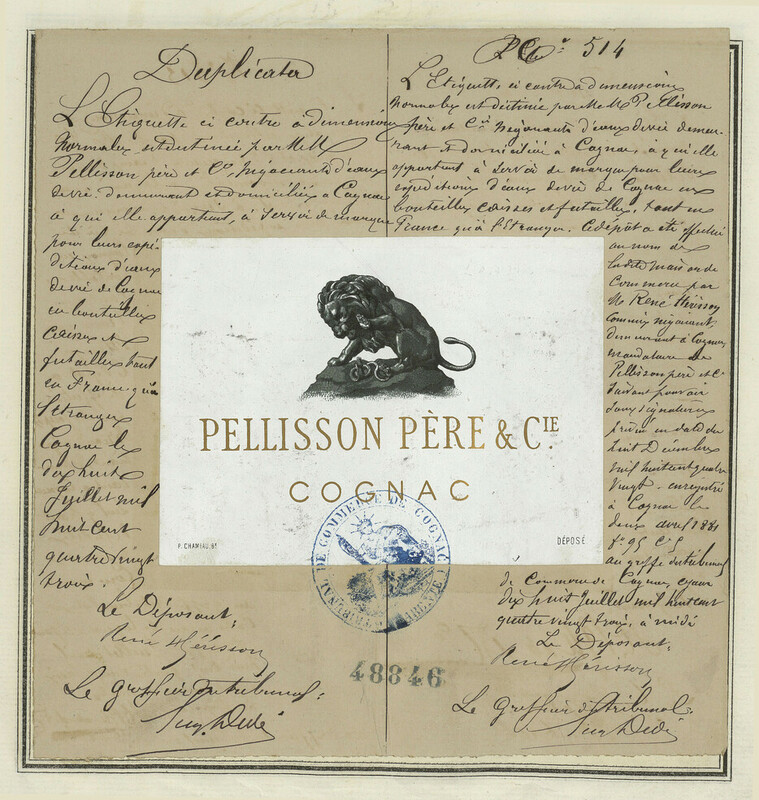 Duplicata
L'Etiquette ci contre à dimensions
Normales est destinée par M M
Pellisson père et Cie, Négociants d'eaux
de vie demeurant et domiciliés à Cognac
à qui elle appartient, à servir de marque
pour leurs expé
ditions d'eaux
de vie de Cognac
en bouteilles
caisses et
futailles tant
en France qu'à
l'Etranger
Cognac le
dix huit
Juillet mil
huit cent
quatre vingt
trois.
Le Déposant:
René Hérisson
Le Greffier du tribunal:
514
L'Etiquette ci contre à dimensions
Normales est destinée par M M Pellisson
père et Cie Négociants d'eaux de vie demeu-
rant et domiciliés à Cognac, à qui elle
appartient à servir de marque pour leurs
expéditions d'eaux de vie de Cognac en
bouteilles caisses et futailles, tant en
France qu'à l'étranger. Ce dépôt a été effectué
au nom de
la dite maison de
Commerce par
M. René Hérisson
Commis négociant
demeurant à Cognac
mandataire de
Pellisson père et Cie
suivant pouvoir
sous signatures
privées en date du
huit Décembre
mil huit cent quatre
vingt - enregistré
à Cognac le
deux avril 1881
fo 95 C 5
au greffe du tribunal
de Commerce de Cognac, ce jour
dix huit Juillet mil huit cent
quatre vingt trois, à midi
Le Déposant:
René Hérisson
Le Greffier du tribunal:
PELLISSON PÈRE & CIE.
COGNAC
DÉPOSÉ
TRIBUNAL DE COMMERCE DE COGNAC
48846